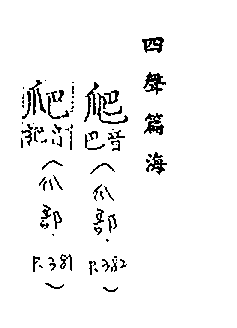 四聲篇海
爬音巴(爪部.P.382)
爬音(爪部.P.381)